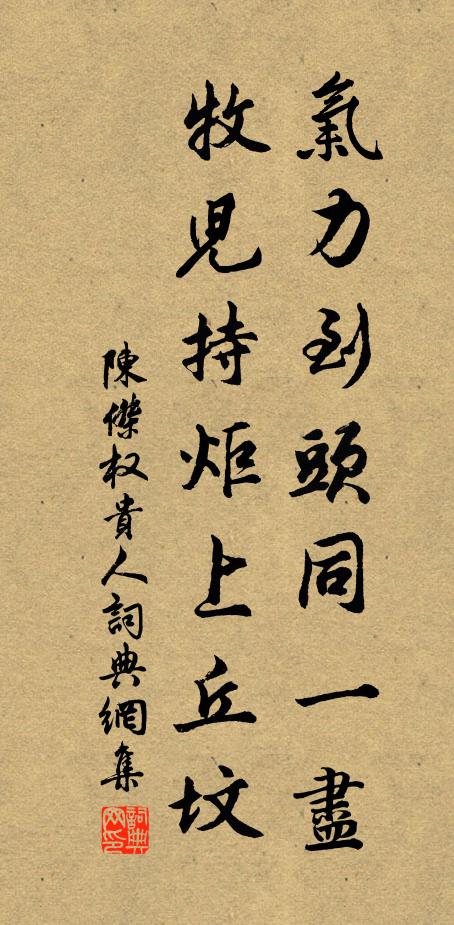 氣力到頭同一盡
牧兒持炬上丘墳
陳傑权貴人詞典網集
詞典網印